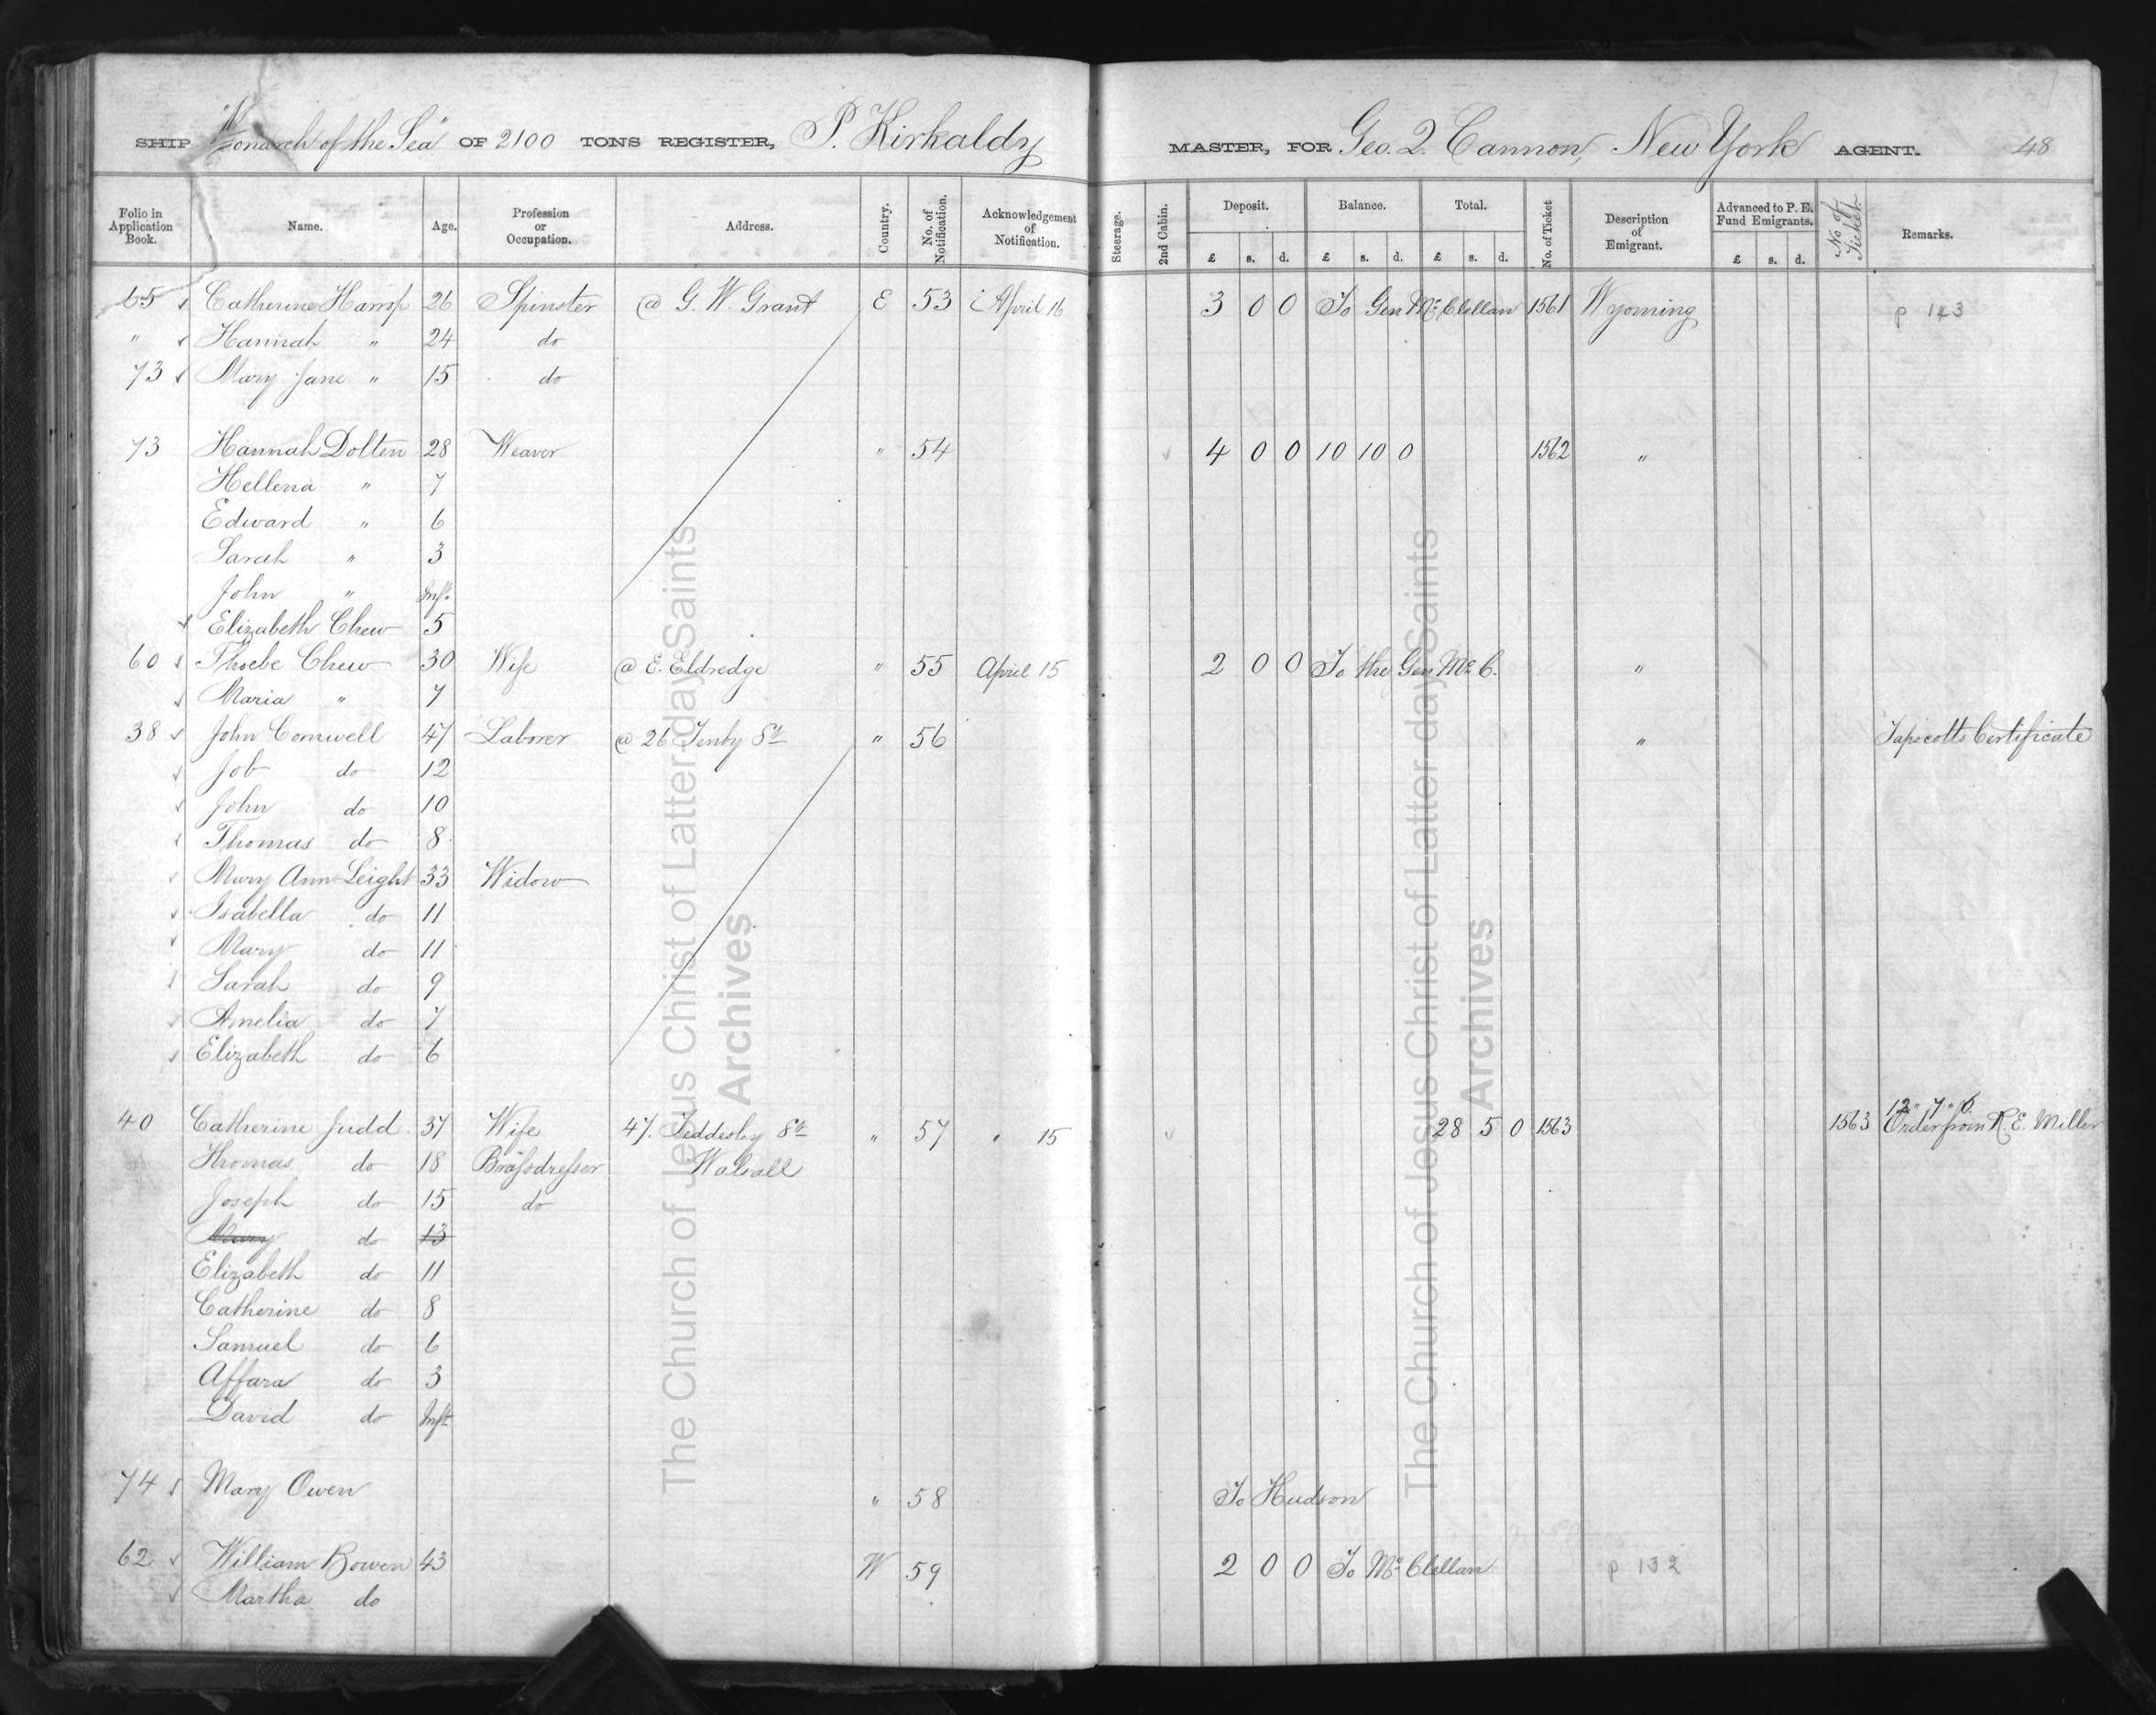 SHIP "Monarch of the Sea" OF 2100 TONS REGISTER, P. Kirkaldy MASTER, FOR Geo. Q. Cannon, New York AGENT. 48
Folio in Application Book. Name. Age. Profession or Occupation. Address. Country. No. of Notification. Acknowledgement of Notification. Steerage. 2nd Cabin. Deposit. Balance. Total. No. of Ticket Description of Emigrant. Advanced to P. E. Fund Emigrants. No of Ticket Remarks.
£ s. d. £ s. d. £ s. d. £ s. d.
65 Catherine Harrop 26 Spinster @ G. W. Grant E 53 April 16 3 0 0 To Gen Mc Clellan 1561 Wyoming p 143
" Hannah " 24 do
73 Mary Jane " 15 do
73 Hannah Dolten 28 Weaver " 54 4 0 0 10 10 0 1562 "
Hellena " 7
Edward " 6
Sarah " 3
John " Inft.
Elizabeth Chew 5
60 Phoebe Chew 30 Wife @ E. Eldredge " 55 April 15 2 0 0 To the Gen Mc C. "
Maria " 7
38 John Cornwell 47 Laborer @ 26 Tenby St " 56 " Tapscotts Certificate
Job do 12
John do 10
Thomas do 8
Mary Ann Leight 33 Widow
Isabella do 11
Mary do 11
Sarah do 9
Amelia do 7
Elizabeth do 6
12 " 7 " 6
40 Catherine Judd 37 Wife 47. Teddesley St " 57 " 15 28 5 0 1563 1563 Order from R. E. Miller
Thomas do 18 Brassdresser Walsall
Joseph do 15 do
Mary do 13
Elizabeth do 11
Catherine do 8
Samuel do 6
Affara do 3
David do Inft
74 Mary Owen " 58 To Hudson
62 William Bowen 43 W 59 2 0 0 To Mc Clellan p 132
Martha do
The Church of Jesus Christ of Latter-day Saints
Archives
The Church of Jesus Christ of Latter-day Saints
Archives